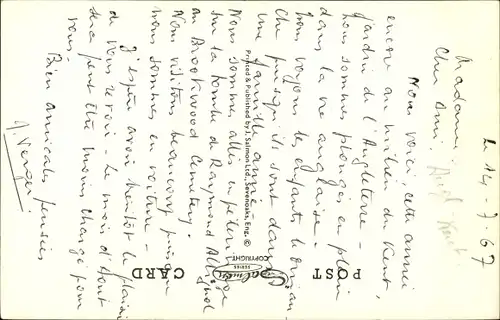 Le 14-7-67
Madame,
Cher Ami
Nous voici, cette année
encore au milieu du Kent,
jardin de l'Angleterre -
nous sommes plongés en plein
dans la vie anglaise.
nous voyons les enfants
puisqu'ils sont dans
une famille amie -
Nous sommes allés en pélerinage
sur la tombe de Raymond
au Brookwood Cemetery.
Nous visitons beaucoup puisque
nous sommes en voiture -
J'espère avoir bientôt le plaisir
de vous revoir - Le mois d'août
sera peut être moins chargé pour
vous.
Bien amicales pensées
POST CARD
Salmon SERIES
COPYRIGHT
Printed & Published by J. Salmon Ltd., Sevenoaks, Eng. ©